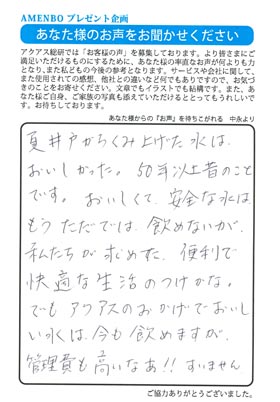 AMENBO プレゼント企画
あなた様のお声をお聞かせください
アクアス総研では「お客様の声」を募集しております。より皆さまにご
満足いただけるものにするために、あなた様の率直なお声が何よりも力
となり、また私どもの今後の参考となります。サービスや会社に関して、
また使用されての感想、他社との違いなど何でもありですので、お気づ
きのことをお寄せください。文章でもイラストでも結構です。また、あな
た様ご自身、ご家族の写真も添えていただけるととってもうれしいで
す。お待ちしております。
あなた様からの『お声』を待ちこがれる 中永より
夏井戸からくみ上げた水は、
おいしかった。50年以上昔のこと
です。おいしくて、安全な水は
もうただでは、飲めないが、
私たちが求めた、便利で
快適な生活のつけかな。
でもアクアスのおかげでおいし
い水は、今も飲めますが、
管理費も高いなあ!! すいません
ご協力ありがとうございました。